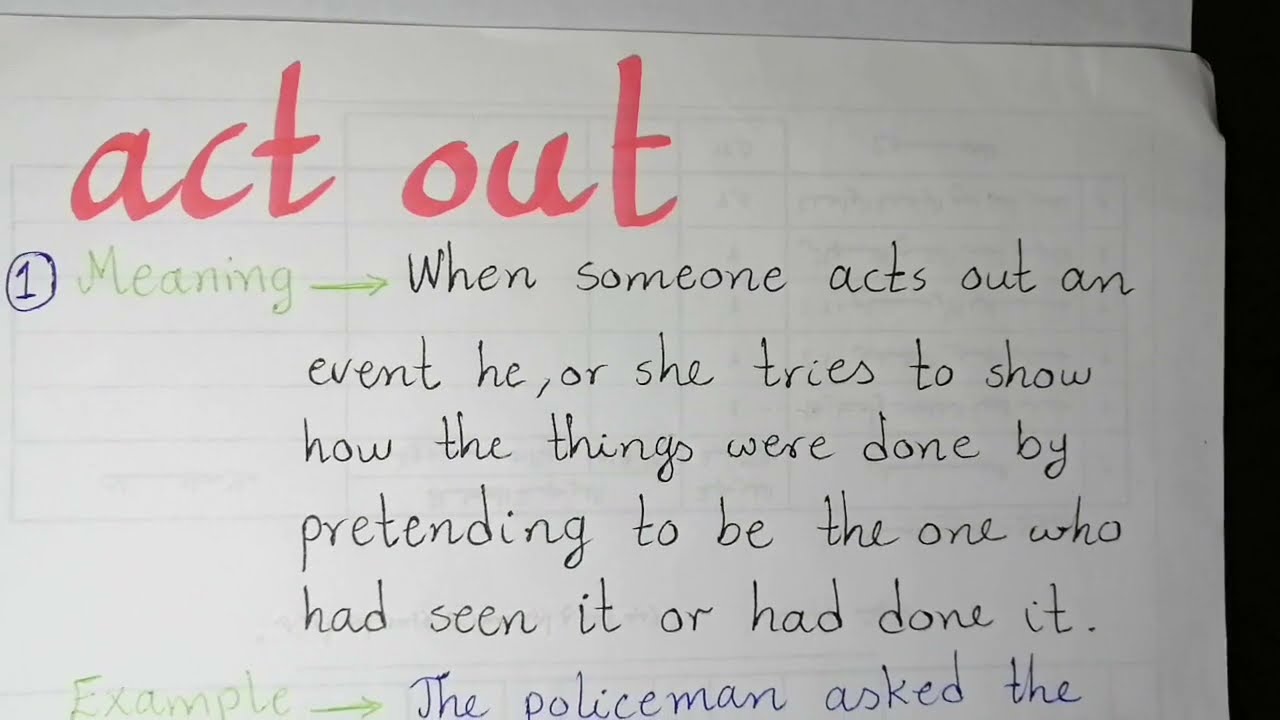 act out
1 Meaning → When someone acts out an
event he, or she tries to show
how the things were done by
pretending to be the one who
had seen it or had done it.
Example → The policeman asked the